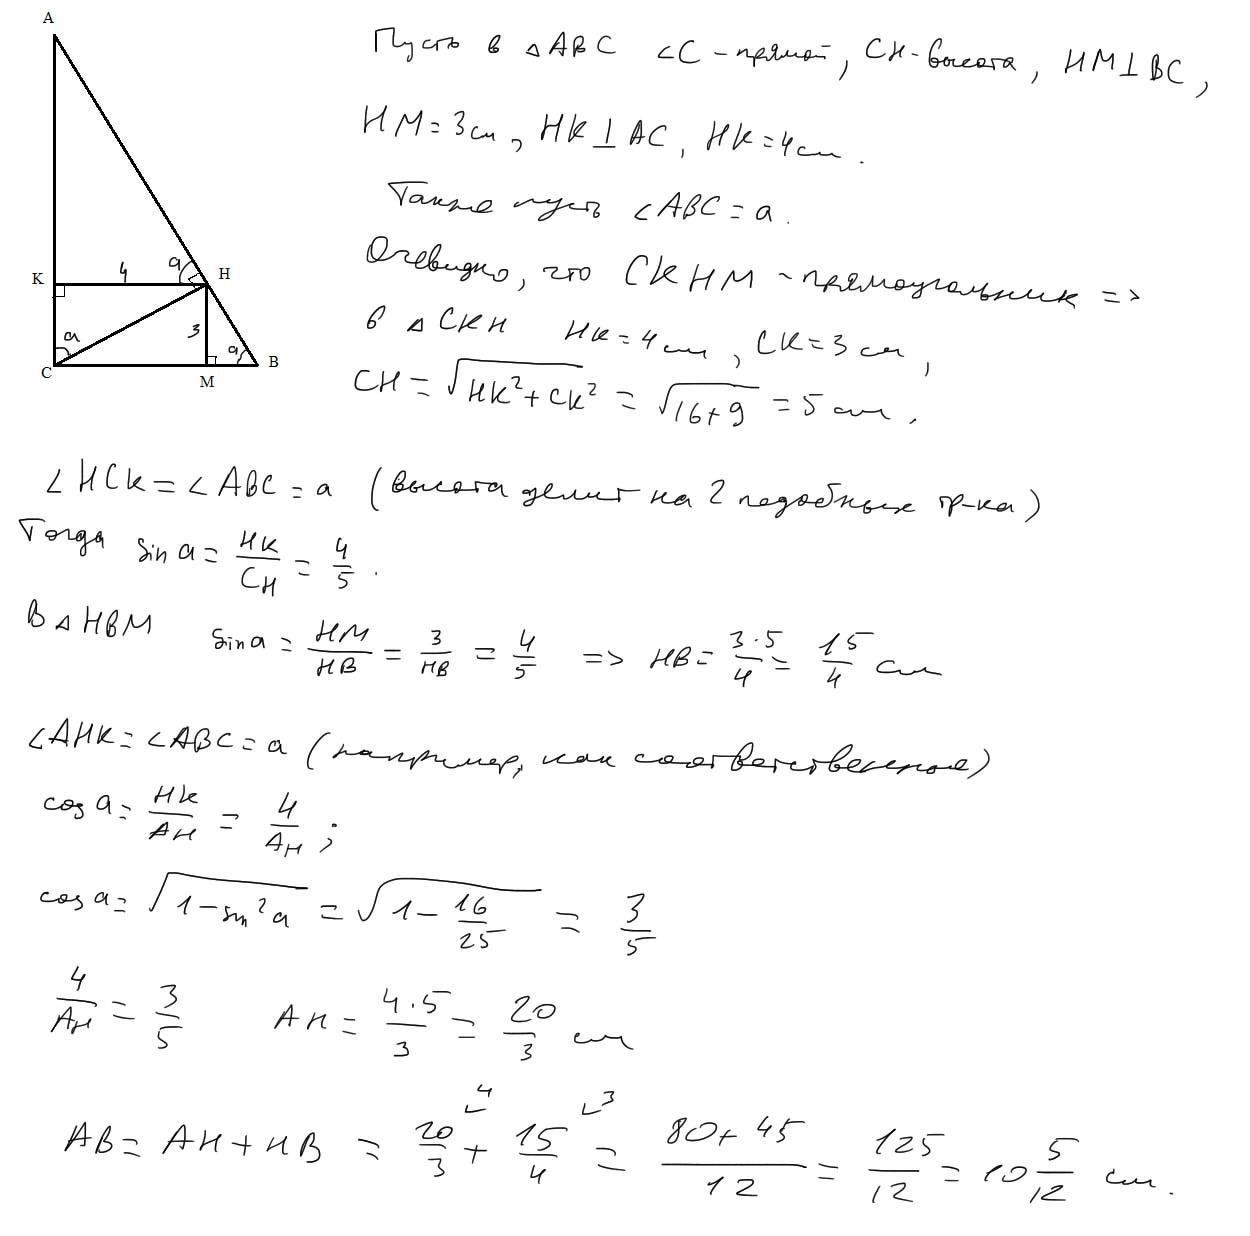 A
Пусть в △ABC ∠C - прямой, CH - высота, HM⊥BC,
HM = 3 см, HK⊥AC, HK = 4 см.
Также пусть ∠ABC = a.
K 4 a H
Очевидно, что CKHM - прямоугольник =>
a 3 a
C M B
в △CKH HK = 4 см, CK = 3 см,
CH = √(HK² + CK²) = √(16 + 9) = 5 см.
∠HCK = ∠ABC = a (высота делит на 2 подобных тр-ка)
Тогда sin a = HK/CH = 4/5.
В △HBM sin a = HM/HB = 3/HB = 4/5 => HB = 3·5/4 = 15/4 см
∠AHK = ∠ABC = a (например, как соответственные)
cos a = HK/AH = 4/AH;
cos a = √(1 - sin²a) = √(1 - 16/25) = 3/5
4/AH = 3/5 AH = 4·5/3 = 20/3 см
AB = AH + HB = 20/3 ⌣4 + 15/4 ⌣3 = 80 + 45/12 = 125/12 = 10 5/12 см.